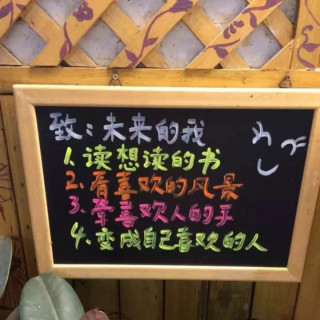 致：未来的我
1.读想读的书
2.看喜欢的风景
3.牵喜欢人的手
4.变成自己喜欢的人